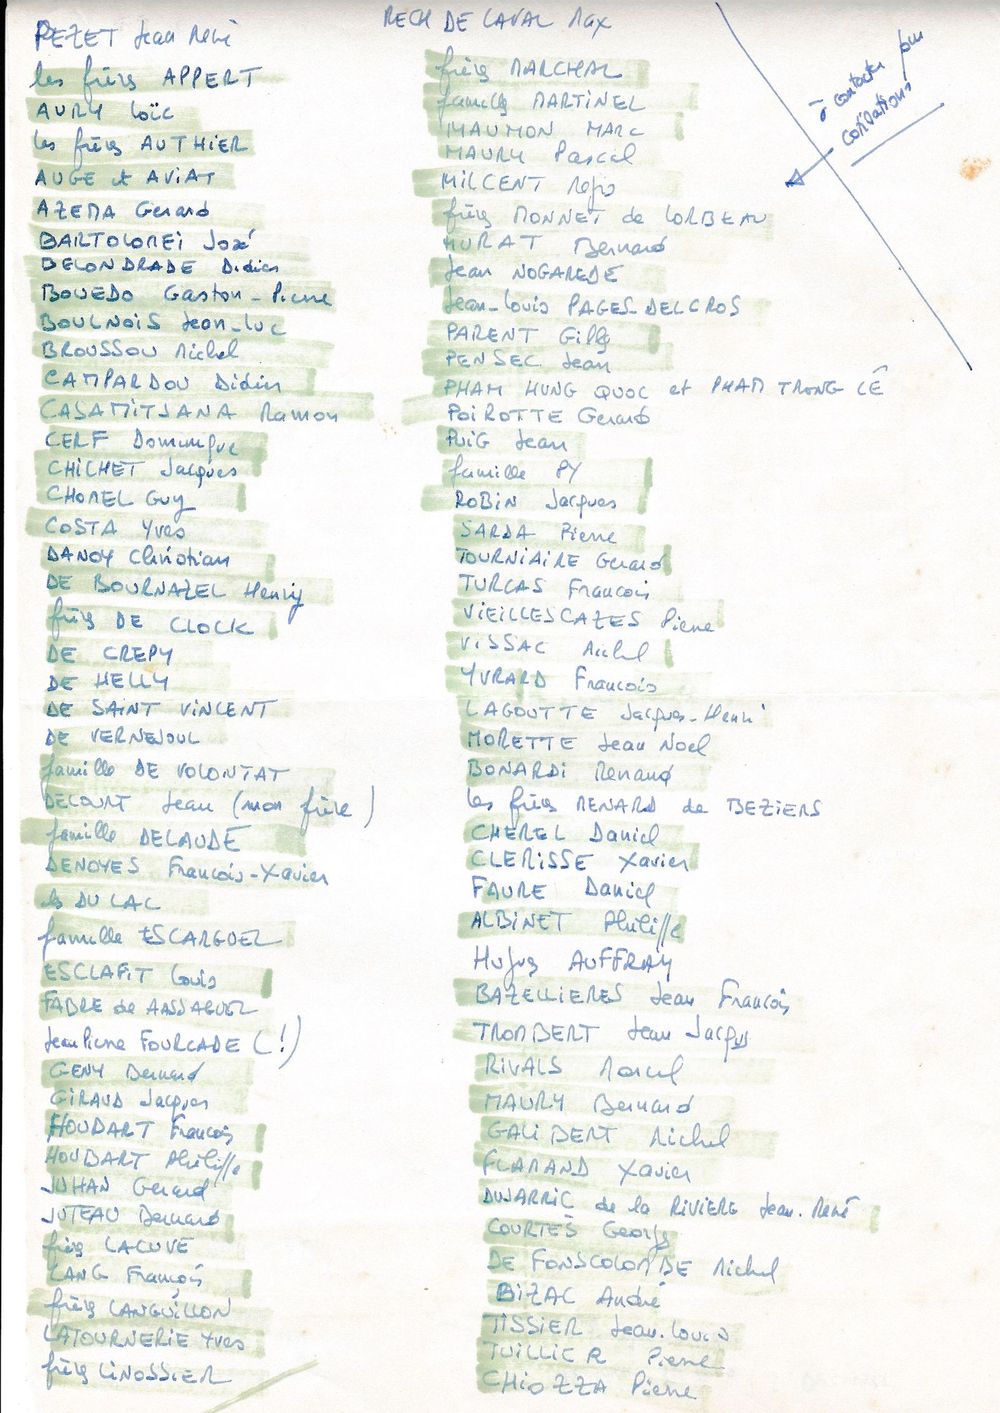 PEZET Jean René
les frères APPERT
AURY Loïc
les frères AUTHIER
AUGE et AVIAT
AZEMA Gerard
BARTOLOMEI José
BELONDRADE Didier
BOUEDO Gaston-Pierre
BOULNOIS Jean-Luc
BROUSSOU Michel
CAMPARDOU Didier
CASAMITJANA Ramon
CERF Dominique
CHICHET Jacques
CHOMEL Guy
COSTA Yves
DANOY Christian
DE BOURNAZEL Henry
frères DE CLOCK
DE CREPY
DE HELLY
DE SAINT VINCENT
DE VERNEJOUL
famille DE VOLONTAT
DECOURT Jean (mon frère)
famille DELAUDE
DENOYES François-Xavier
les DULAC
famille ESCARGUEL
ESCLAFIT Louis
FABRE de MASSAGUEL
Jean Pierre FOURCADE (!)
GENY Bernard
GIRAUD Jacques
HOUDART François
HOUDART Philippe
JUHAN Gerard
JUTEAU Bernard
frères LACUVE
LANG François
frères LANGUILLON
LATOURNERIE Yves
frères LINOSSIER
RECH DE LAVAL Max
frères MARCHAL
famille MARTINEL
MAUMON MARC
MAURY Pascal
MILCENT Régis
frères MONNET de LORBEAU
MURAT Bernard
Jean NOGAREDE
Jean-Louis PAGES-DELCROS
PARENT Gilles
PENSEC Jean
PHAM HUNG QUOC et PHAM TRONG LÊ
POIROTTE Gerard
PUIG Jean
famille PY
ROBIN Jacques
SARDA Pierre
TOURNIAIRE Gerard
TURCAS François
VIEILLESCAZES Pierre
VISSAC Michel
YVRARD François
LAGOUTTE Jacques-Henri
MORETTE Jean Noel
BONARDI Renaud
les frères MENARD de BEZIERS
CHEREL Daniel
CLERISSE Xavier
FAURE Daniel
ALBINET Philippe
Hugues AUFFRAY
BAZELLIERES Jean François
TROMBERT Jean Jacques
RIVALS Marcel
MAURY Bernard
GALIBERT Michel
FLAMAND Xavier
DUJARRIC de la RIVIERE Jean-René
COURTÈS Georges
DE FONSCOLOMBE Michel
BIZAC André
TISSIER Jean-Louis
TUILLIER Pierre
CHIOZZA Pierre
à contacter pour
cotisations